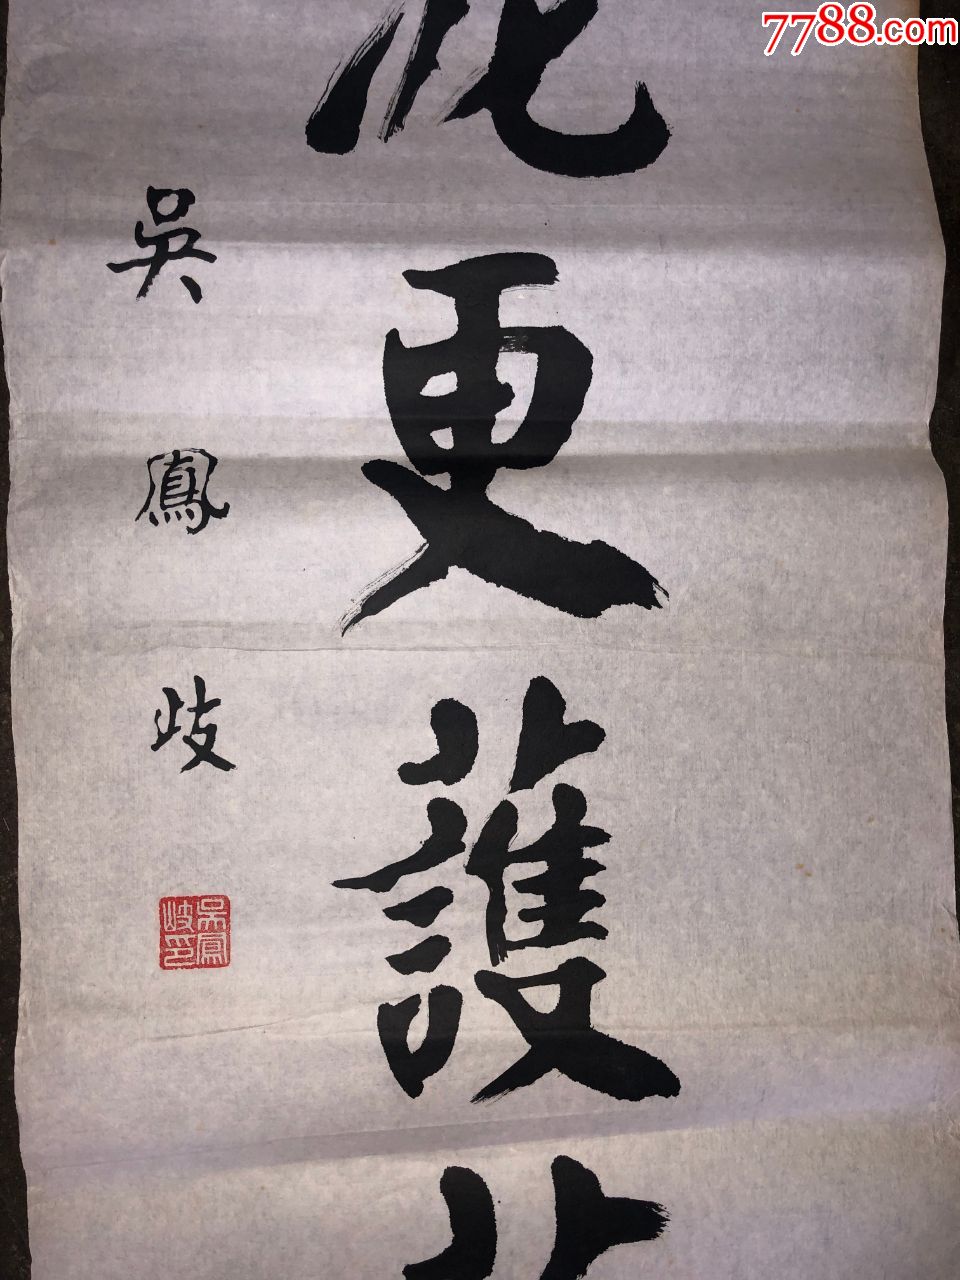 7788.com
更護
吳鳳歧
吳鳳歧印